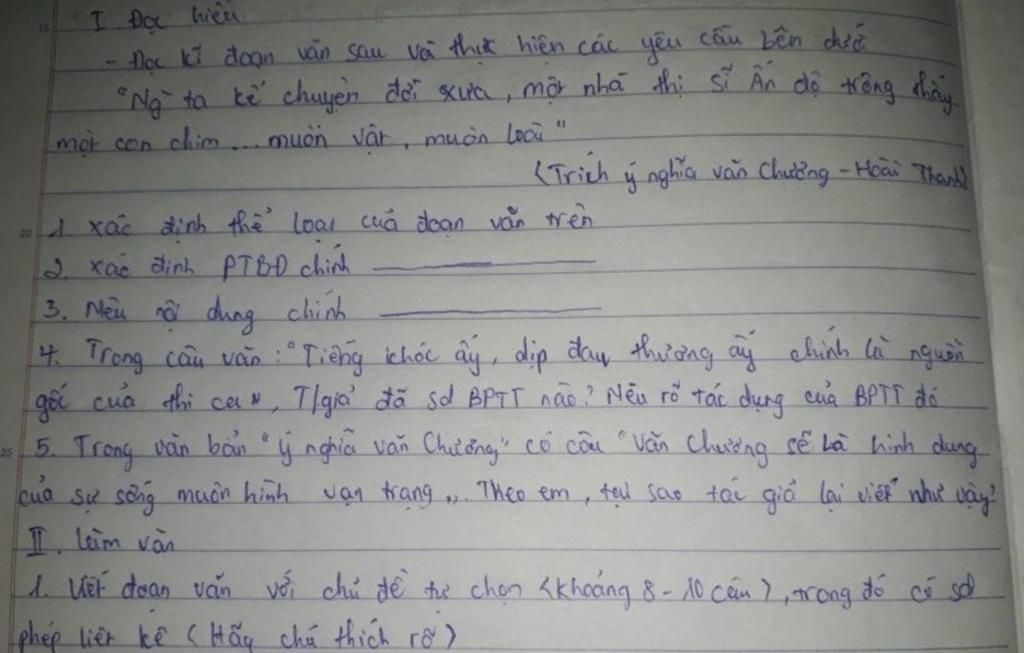 I Đọc hiểu
- Đọc kĩ đoạn văn sau và thực hiện các yêu cầu bên dưới
"Ng` ta kể chuyện đời xưa, một nhà thi sĩ Ấn độ trông thấy
một con chim ... muôn vật, muôn loài"
(Trích ý nghĩa văn Chương - Hoài Thanh)
1. Xác định thể loại của đoạn văn trên
2. Xác định PTBĐ chính
3. Nêu nội dung chính
4. Trong câu văn: "Tiếng khóc ấy, dịp đau thương ấy chính là nguồn
gốc của thi ca", T/giả đã sd BPTT nào? Nêu rõ tác dụng của BPTT đó
5. Trong văn bản "ý nghĩa văn Chương" có câu "Văn Chương sẽ là hình dung
của sự sống muôn hình vạn trạng". Theo em, tại sao tác giả lại viết như vậy?
II. Làm văn
1. Viết đoạn văn với chủ đề tự chọn (khoảng 8 - 10 câu), trong đó có sd
phép liệt kê (Hãy chú thích rõ)